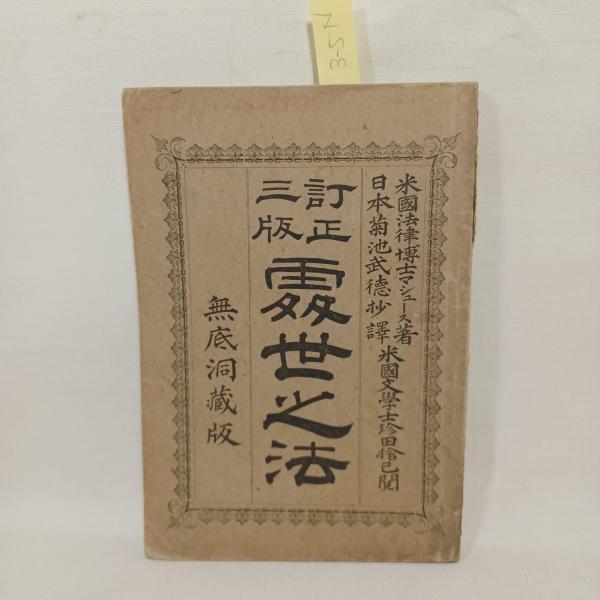 米國法律博士マシュース著
日本菊池武德抄譯
米國文學士珍田捨己閲
訂正
三版
處世之法
無底洞藏版